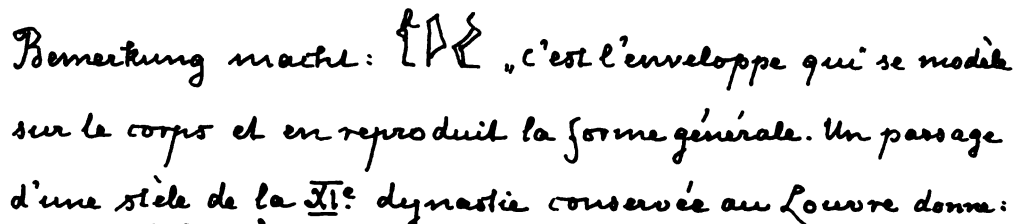 Bemerkung macht: „c'est l'enveloppe qui se modèle
sur le corps et en reproduit la forme générale. Un passage
d'une stèle de la XIe dynastie conservée au Louvre donne: